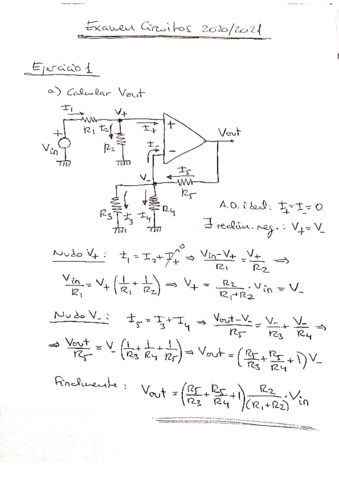 Examen Circuitos 2020/2021
Ejercicio 1
a) Calcular Vout
I₁ V₊ I₊ + Vout
R₁ I₂ R₂ I₋ −
+ Vin
V₋ I₅ R₅
R₃ I₃ I₄ R₄
A.O. ideal: I₊=I₋=0
∃ realim. neg.: V₊=V₋
Nudo V₊: I₁ = I₂ + I₊ ⁰ ⇒ (Vin-V₊)/R₁ = V₊/R₂ ⇒
Vin/R₁ = V₊(1/R₁ + 1/R₂) ⇒ V₊ = R₂/(R₁+R₂) · Vin = V₋
Nudo V₋: I₅ = I₃ + I₄ ⇒ (Vout-V₋)/R₅ = V₋/R₃ + V₋/R₄ ⇒
⇒ Vout/R₅ = V₋(1/R₃ + 1/R₄ + 1/R₅) ⇒ Vout = (R₅/R₃ + R₅/R₄ + 1) V₋
Finalmente: Vout = (R₅/R₃ + R₅/R₄ + 1) R₂/(R₁+R₂) · Vin